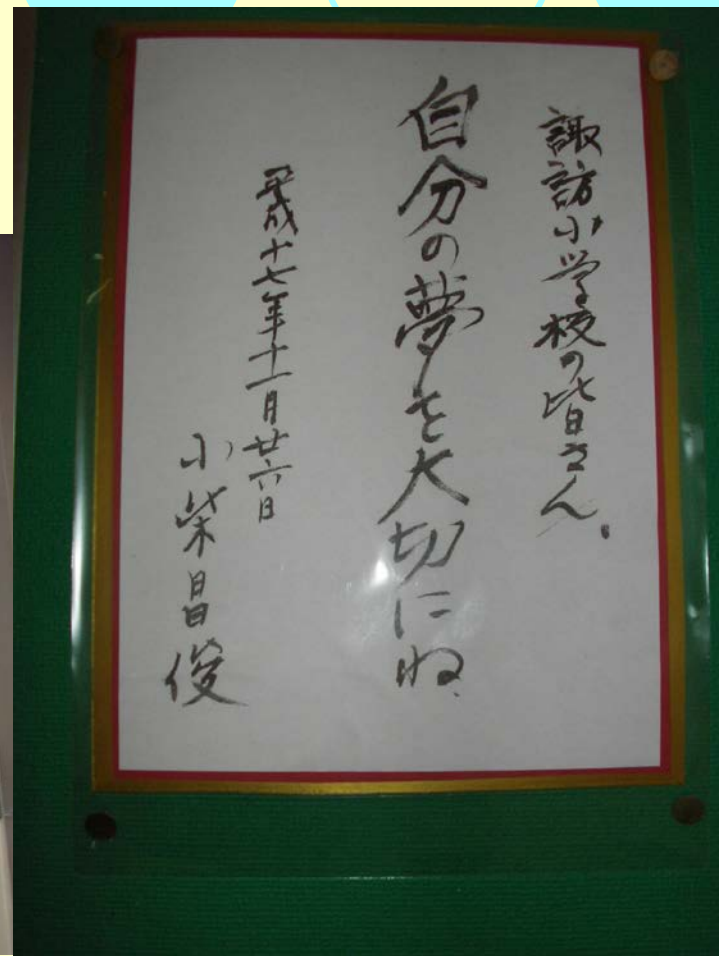 諏訪小学校の皆さん、
自分の夢を大切にね、
平成十七年十一月廿六日
小柴昌俊